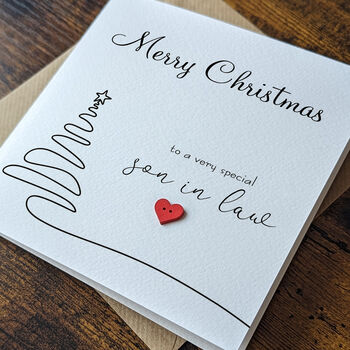 Merry Christmas
to a very special
son in law